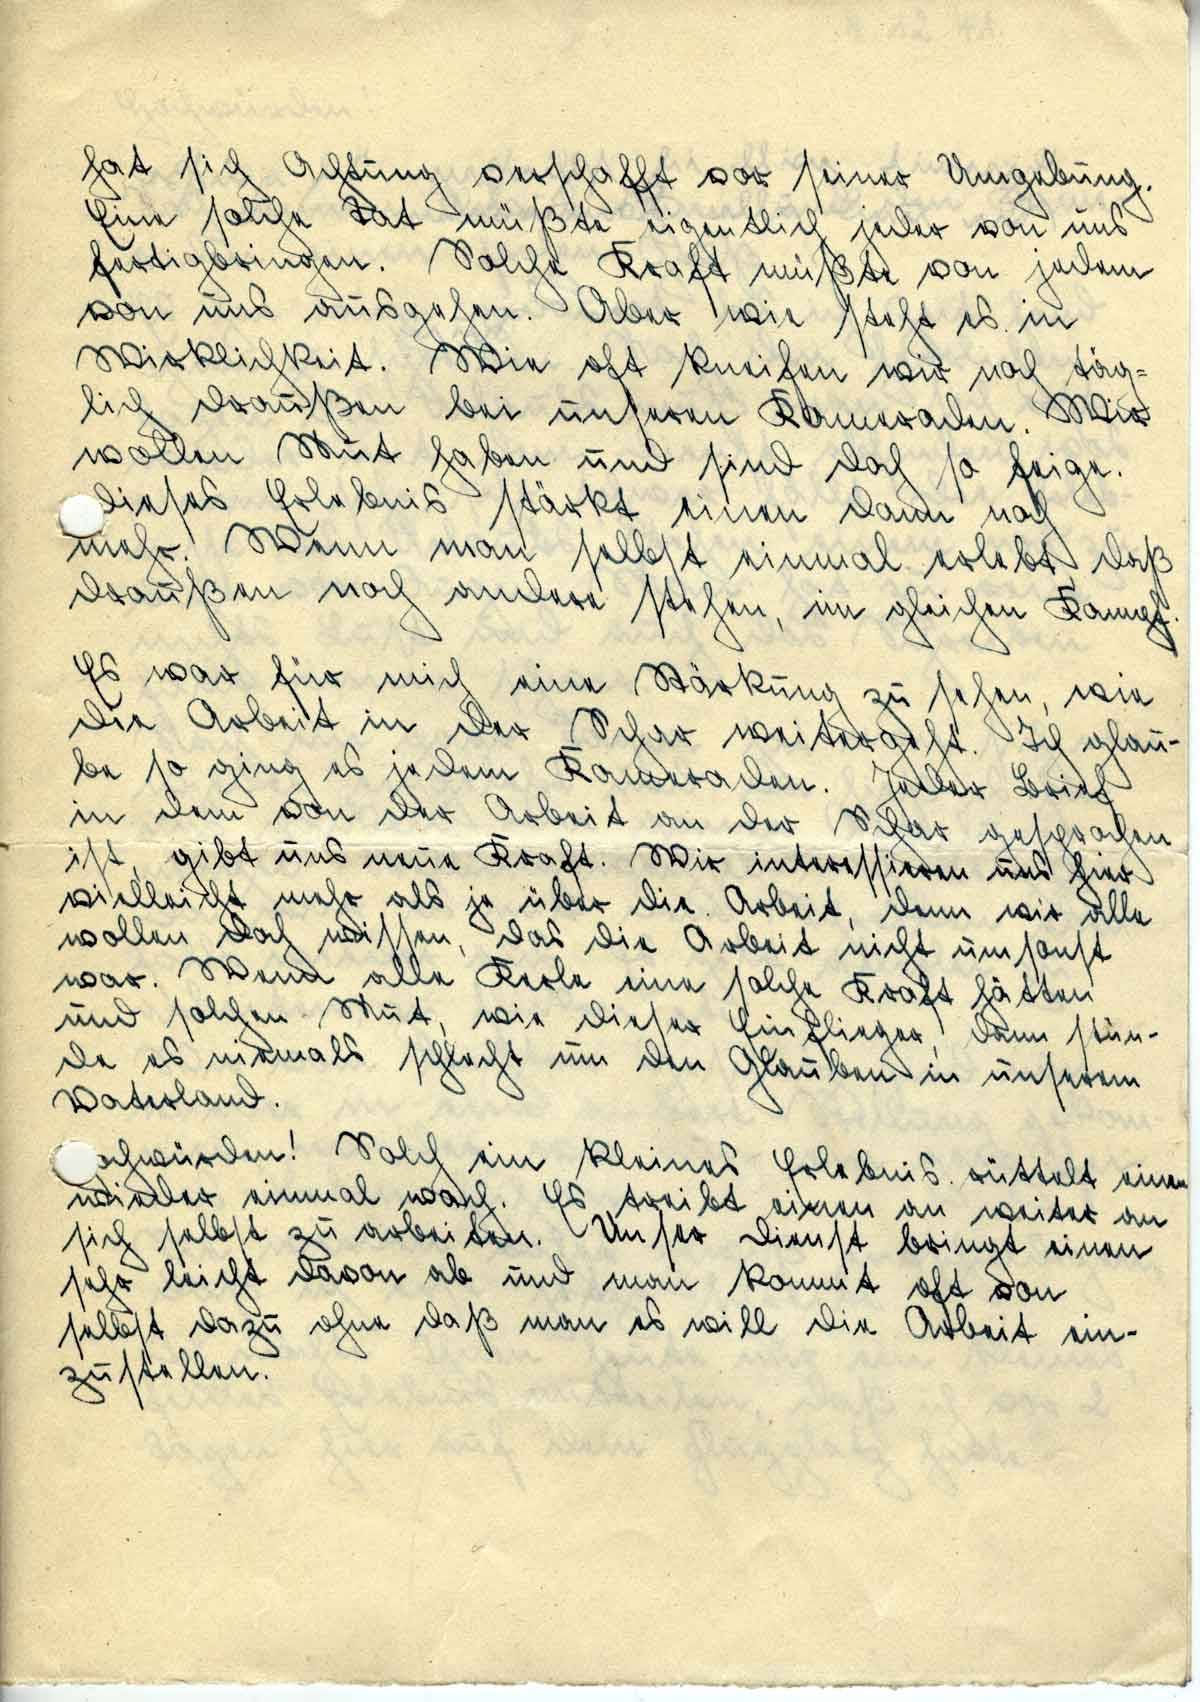 hat sich Achtung verschafft vor seiner Umgebung.
Eine solche Tat müßte eigentlich jeder von uns
fertigbringen. Solche Kraft müßte von jedem
von uns ausgehen. Aber wie steht es in
Wirklichkeit. Wie oft kneifen wir noch täg=
lich draußen bei unseren Kameraden. Wir
wollen Mut haben und sind doch so feige.
dieses Erlebnis stärkt einen dann noch
mehr. Wenn man selbst einmal erlebt, daß
draußen noch andere stehen, im gleichen Kampf.
Es war für mich eine Stärkung zu sehen, wie
die Arbeit in der Schar weitergeht. Ich glau-
be so ging es jedem Kameraden. Jeder Brief
in dem von der Arbeit an der Schar gesprochen
ist, gibt uns neue Kraft. Wir interessieren uns hier
vielleicht mehr als je über die Arbeit, denn wir alle
wollen doch wissen, das die Arbeit nicht umsonst
war. Wenn alle Kerle eine solche Kraft hätten
und solchen Mut, wie dieser Einflieger, dann stün-
de es niemals schlecht um den Glauben in unserem
Vaterland.
ochwürden! Solch ein kleines Erlebnis rüttelt einen
wieder einmal wach. Es treibt einen an weiter an
sich selbst zu arbeiten. Unser Dienst bringt einen
sehr leicht davon ab und man kommt oft von
selbst dazu ohne daß man es will die Arbeit ein-
zustellen.